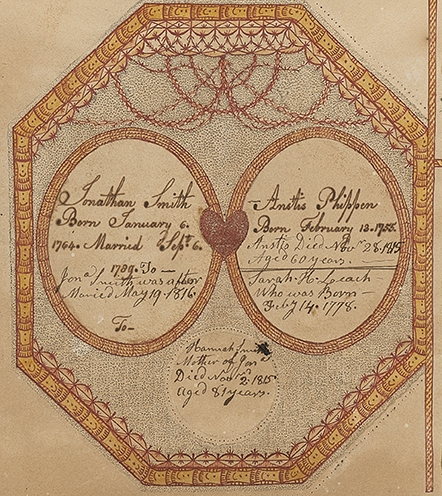 Jonathan Smith
Born January 6.
1764. Married Sept. 6.
1789. To —
Jona. Smith was after
Maried May 19. 1816.
To —
Anstis Phippen
Born February 13. 1755.
Anstis Died Novr. 28. 1815
Aged 60 years. —
Sarah H. Leach
Who was Born —
Feby 14. 1778.
Hannah Smith
Mother of Jona
Died Novr. 2. 1815
Aged 81 years.